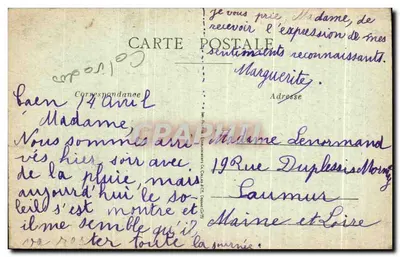 je vous prie Madame, de
recevoir l'expression de mes
sentiments reconnaissants.
Marguerite.
CARTE POSTALE
Calvados
Correspondance
Adresse
Caen 14 Avril
Madame
Nous sommes arri-
vés hier soir avec
de la pluie, mais
aujourd'hui le so-
leil s'est montré et
il me semble qu'il
va rester toute la journée.
Madame Lenormand
19 Rue Duplessis Mornay
Saumur
Maine et Loire